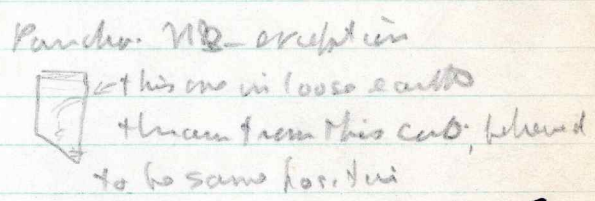 Pancho. NB - exception
this one in loose earth
thrown from this cut, believed
to be same position